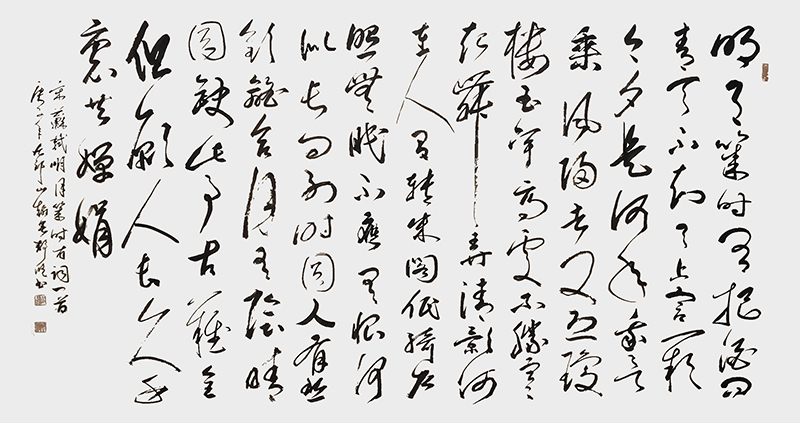 明月幾時有把酒問
青天不知天上宮闕
今夕是何年我欲
乘風歸去又恐瓊
樓玉宇高處不勝寒
起舞弄清影何
在人間轉朱閣低綺戶
照無眠不應有恨何
似長向別時圓人有悲
歡離合月有陰晴
圓缺此事古難全
但願人長久
共嬋娟
宋蘇軾明月幾時有詞一首